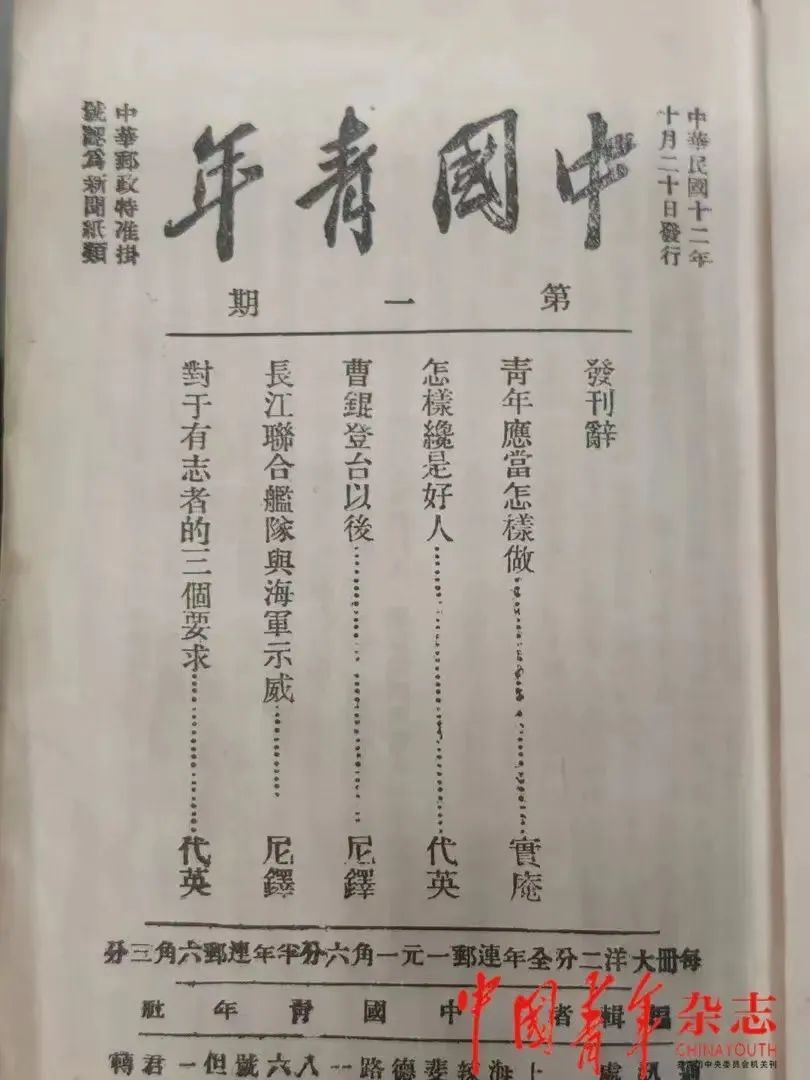 中華民國十二年
十月二十日發行
中國青年
中華郵政特准掛
號認爲新聞紙類
第一期
發刊辭
青年應當怎樣做……實庵
怎樣纔是好人……代英
曹錕登台以後……尼鐸
長江聯合艦隊與海軍示威……尼鐸
對于有志者的三個要求……代英
每冊大洋二分全年連郵一元一角六分半年連郵六角三分
編輯者 中國青年社
處 上海辣斐德路一八六號但一君轉
中国青年杂志
CHINAYOUTH
中央委员会机关刊